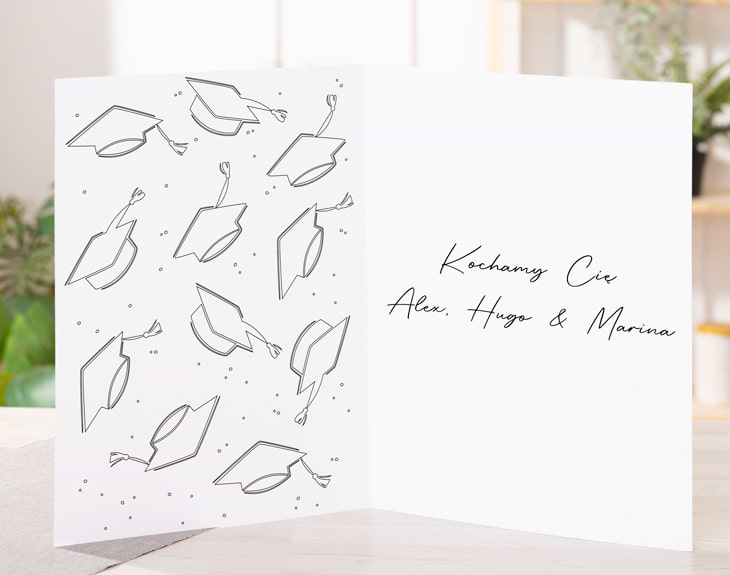 Kochamy Cię
Alex, Hugo & Marina